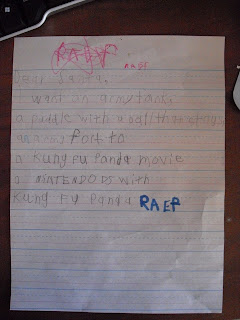 Dear Santa,
I want an army tank,
a puddle with a ball that
an army fort to
a Kung Fu Panda movie
a NINTENDO DS with
Kung Fu Panda RAEF